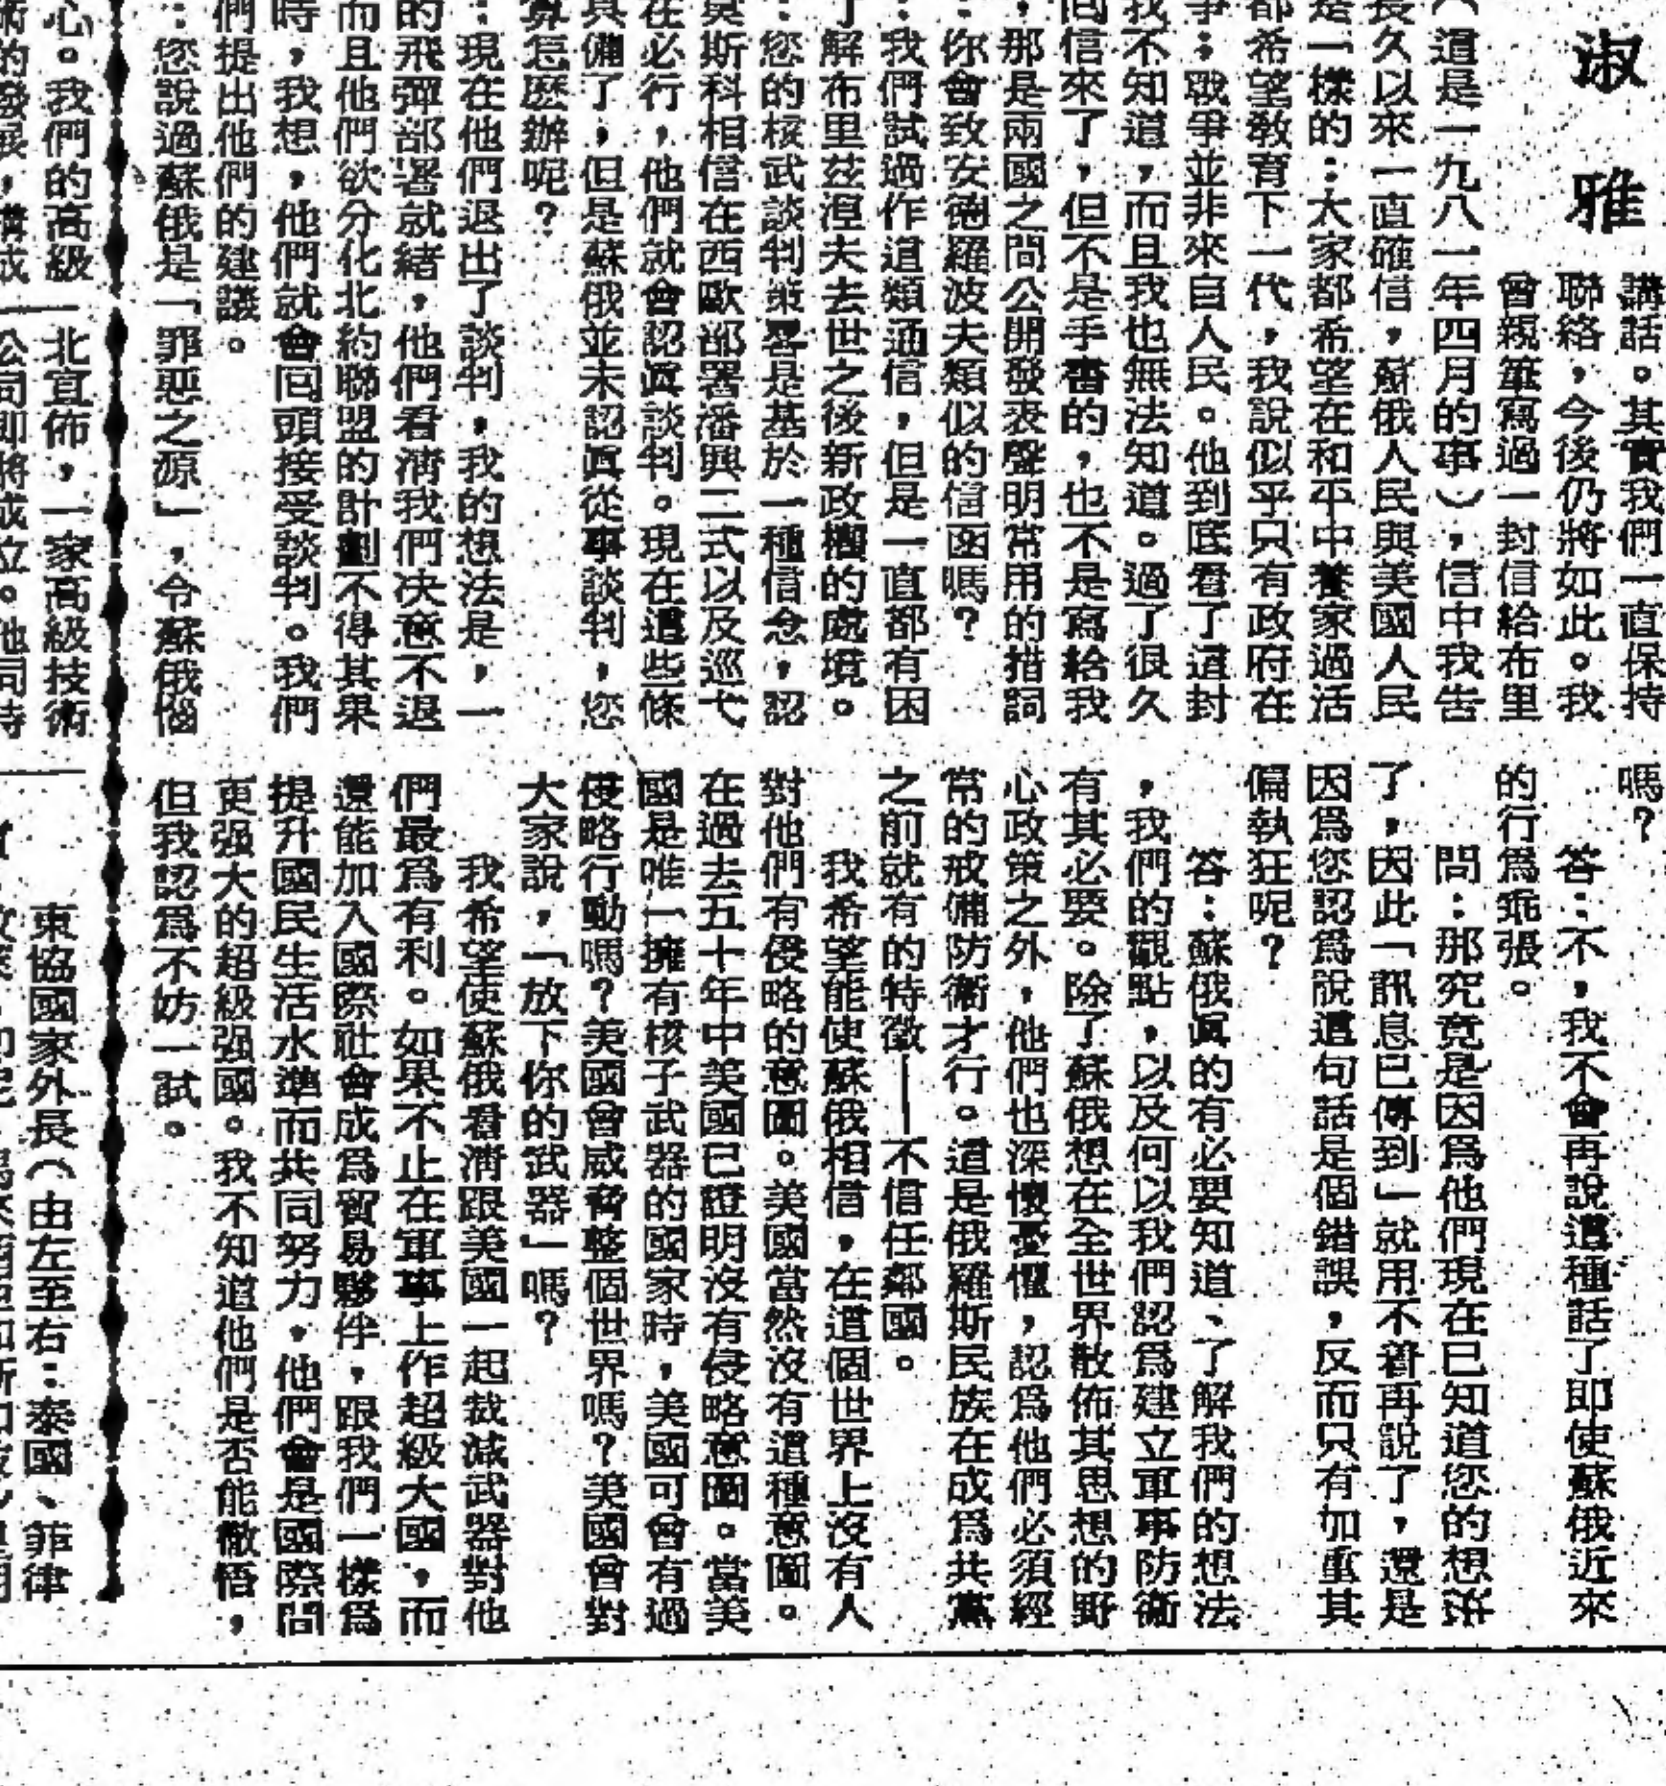 淑雅
講話。其實我們一直保持
聯絡，今後仍將如此。我
曾親筆寫過一封信給布里
（這是一九八一年四月的事），信中我告
長久以來一直確信，蘇俄人民與美國人民
是一樣的：大家都希望在和平中養家過活
都希望教育下一代，我說似乎只有政府在
爭；戰爭並非來自人民。他到底看了這封
我不知道，而且我也無法知道。過了很久
回信來了，但不是手書的，也不是寫給我
，那是兩國之間公開發表聲明常用的措詞
：你會致安德羅波夫類似的信函嗎？
：我們試過作這類通信，但是一直都有困
了解布里茲湼夫去世之後新政權的處境。
：您的核武談判策略是基於一種信念，認
莫斯科相信在西歐部署潘興二式以及巡弋
在必行，他們就會認眞談判。現在這些條
具備了，但是蘇俄並未認眞從事談判，您
算怎麽辦呢？
：現在他們退出了談判，我的想法是，一
的飛彈部署就緒，他們看清我們決意不退
而且他們欲分化北約聯盟的計劃不得其果
時，我想，他們就會回頭接受談判。我們
們提出他們的建議。
：您說過蘇俄是「罪惡之源」，令蘇俄惱
嗎？
答：不，我不會再說這種話了即使蘇俄近來
的行爲乖張。
問：那究竟是因爲他們現在已知道您的想法
了，因此「訊息已傳到」就用不着再說了，還是
因爲您認爲說這句話是個錯誤，反而只有加重其
偏執狂呢？
答：蘇俄眞的有必要知道、了解我們的想法
，我們的觀點，以及何以我們認爲建立軍事防衞
有其必要。除了蘇俄想在全世界散佈其思想的野
心政策之外，他們也深懷憂懼，認爲他們必須經
常的戒備防衞才行。這是俄羅斯民族在成爲共黨
之前就有的特徵——不信任鄰國。
我希望能使蘇俄相信，在這個世界上沒有人
對他們有侵略的意圖。美國當然沒有這種意圖。
在過去五十年中美國已證明沒有侵略意圖。當美
國是唯一擁有核子武器的國家時，美國可曾有過
侵略行動嗎？美國曾威脅整個世界嗎？美國曾對
大家說，「放下你的武器」嗎？
我希望使蘇俄看清跟美國一起裁減武器對他
們最爲有利。如果不止在軍事上作超級大國，而
還能加入國際社會成爲貿易夥伴，跟我們一樣爲
提升國民生活水準而共同努力，他們會是國際間
更强大的超級强國。我不知道他們是否能徹悟，
但我認爲不妨一試。
心。我們的高級
術的發展，構成
北宣佈，一家高級技術
公司即將成立。他同時
東協國家外長（由左至右：泰國、菲律